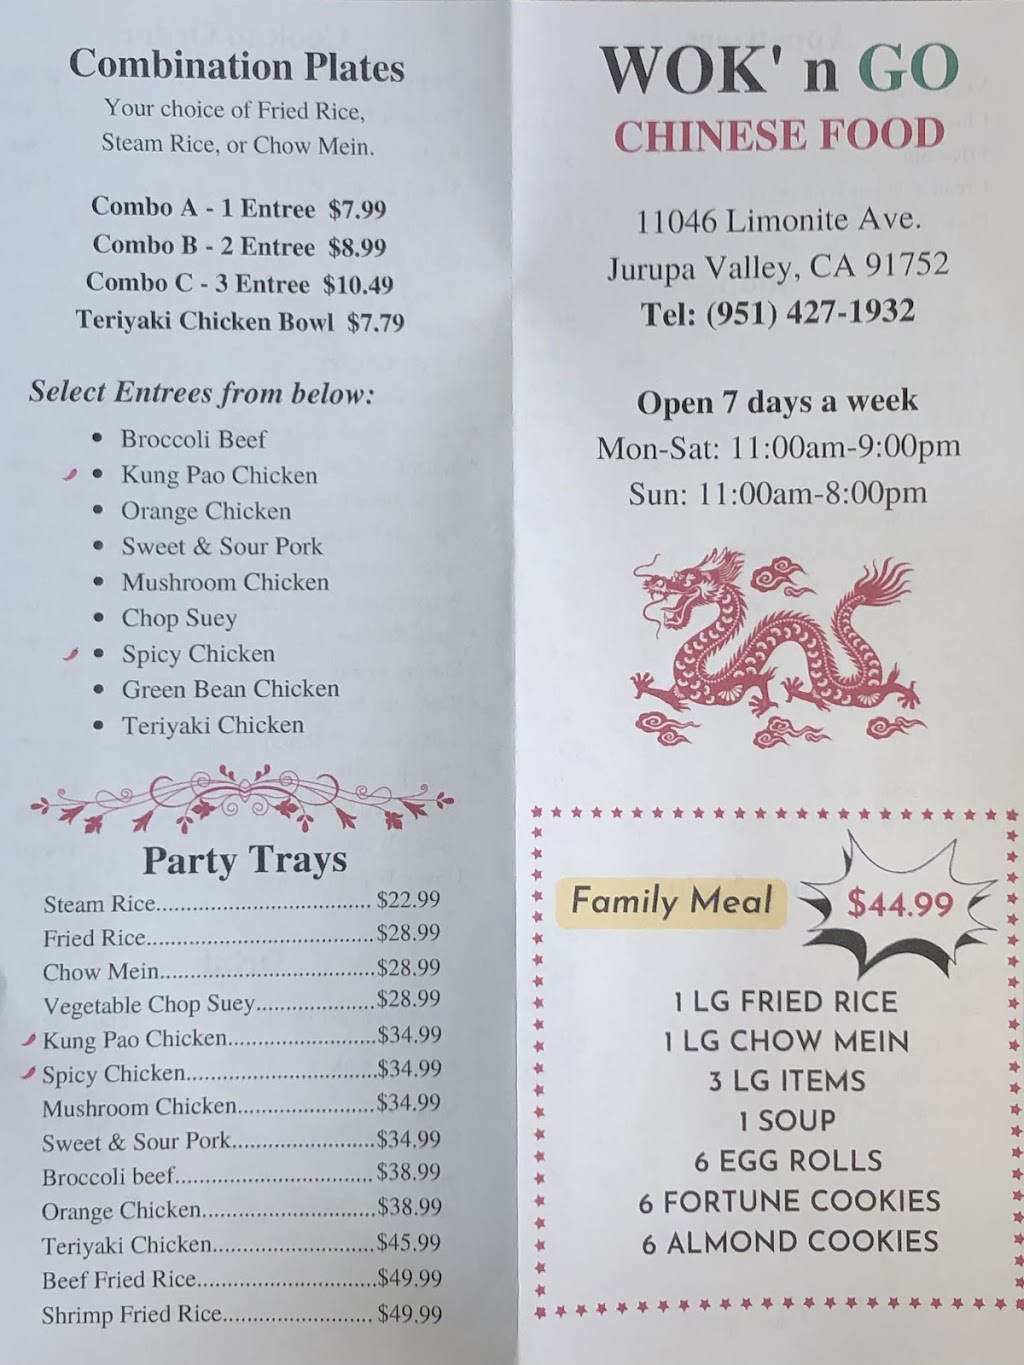 Combination Plates
Your choice of Fried Rice,
Steam Rice, or Chow Mein.
Combo A - 1 Entree $7.99
Combo B - 2 Entree $8.99
Combo C - 3 Entree $10.49
Teriyaki Chicken Bowl $7.79
Select Entrees from below:
• Broccoli Beef
• Kung Pao Chicken
• Orange Chicken
• Sweet & Sour Pork
• Mushroom Chicken
• Chop Suey
• Spicy Chicken
• Green Bean Chicken
• Teriyaki Chicken
Party Trays
Steam Rice.................................... $22.99
Fried Rice......................................$28.99
Chow Mein....................................$28.99
Vegetable Chop Suey....................$28.99
Kung Pao Chicken.........................$34.99
Spicy Chicken................................$34.99
Mushroom Chicken.......................$34.99
Sweet & Sour Pork........................$34.99
Broccoli beef.................................$38.99
Orange Chicken.............................$38.99
Teriyaki Chicken...........................$45.99
Beef Fried Rice..............................$49.99
Shrimp Fried Rice......................... $49.99
WOK' n GO
CHINESE FOOD
11046 Limonite Ave.
Jurupa Valley, CA 91752
Tel: (951) 427-1932
Open 7 days a week
Mon-Sat: 11:00am-9:00pm
Sun: 11:00am-8:00pm
Family Meal $44.99
1 LG FRIED RICE
1 LG CHOW MEIN
3 LG ITEMS
1 SOUP
6 EGG ROLLS
6 FORTUNE COOKIES
6 ALMOND COOKIES